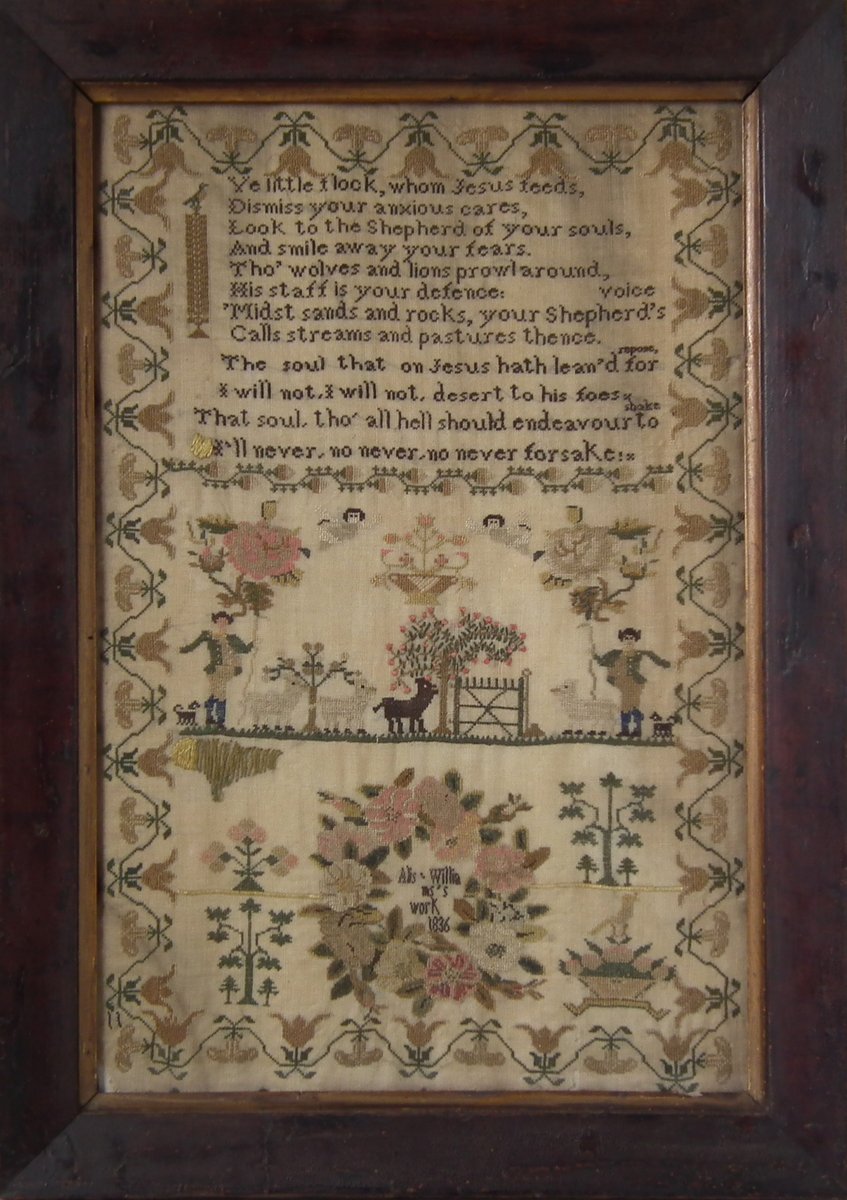 Ye little flock, whom Jesus feeds,
Dismiss your anxious cares,
Look to the Shepherd of your souls,
And smile away your fears.
Tho' wolves and lions prowl around,
His staff is your defence: voice
'Midst sands and rocks, your Shepherd's
Calls streams and pastures thence.
repose,
The soul that on Jesus hath lean'd for
I will not, I will not, desert to his foes
shake
That soul, tho' all hell should endeavour to
I'll never, no never, no never forsake:
Alis Willia
ms's
work
1836